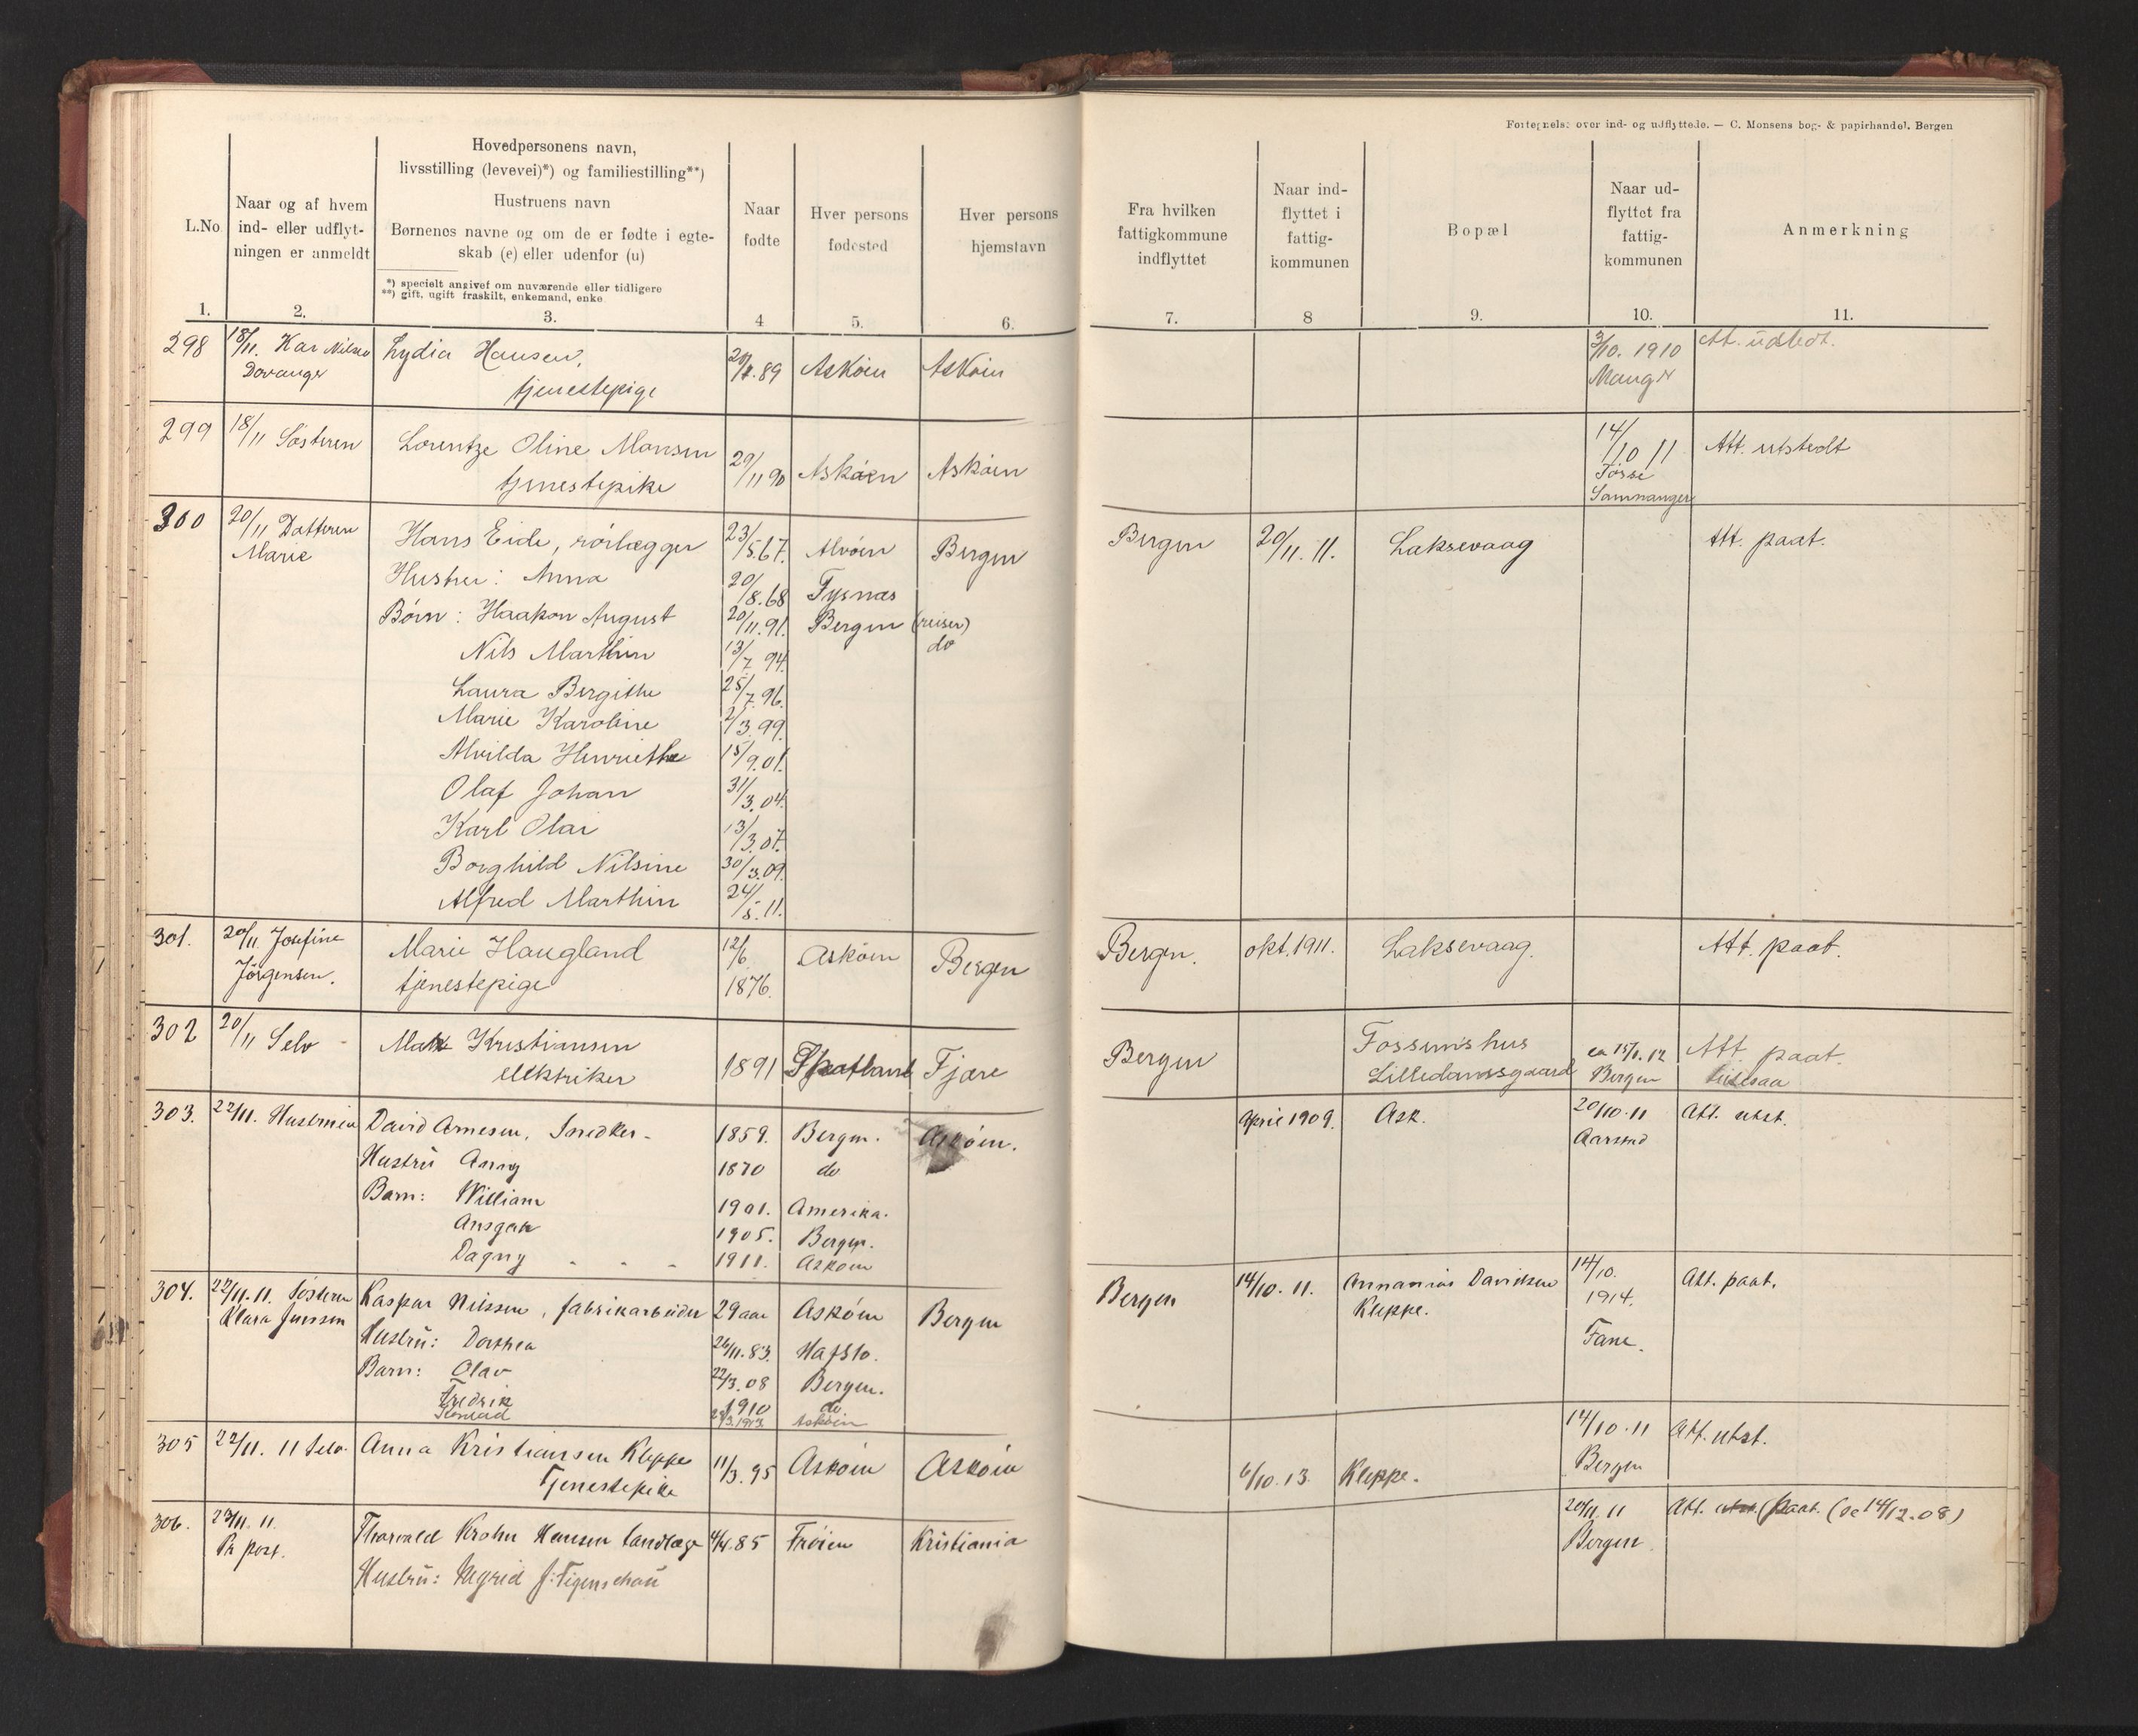 Fortegnelse over ind- og udflyttede. — C. Monsens bog- & papirhandel. Bergen
L.No.
Naar og af hvem
ind- eller udflyt-
ningen er anmeldt
Hovedpersonens navn,
livsstilling (levevei)*) og familiestilling**)
Hustruens navn
Børnenes navne og om de er fødte i egte-
skab (e) eller udenfor (u)
*) specielt angivet om nuværende eller tidligere
**) gift, ugift fraskilt, enkemand, enke
Naar
fødte
Hver persons
fødested
Hver persons
hjemstavn
Fra hvilken
fattigkommune
indflyttet
Naar ind-
flyttet i
fattig-
kommunen
Bopæl
Naar ud-
flyttet fra
fattig-
kommunen
Anmerkning
1. 2. 3. 4 5. 6. 7. 8 9. 10. 11.
298 18/11. Kar Nilsen Lydia Hansen, 89 Askøen Askøen 3/10. 1910 Att. udstedt.
Davanger tjenestepige Manger
299 18/11 Søsteren Lorentze Oline Monsen 29/11 90 Askøen Askøen 14/10 11 Att. utstedt
tjenestepike Samnanger
300 20/11 Datteren Hans Eide, rørlægger 23/5.67. Alvøen Bergen Bergen 20/11. 11. Laksevaag Att. paat.
Marie Hustru: Anna 20/8.68 Tysnæs
Børn: Haakon August 20/11.91. Bergen (reiser)
Nils Marthin 13/7 94. do
Laura Birgithe 25/7.96.
Marie Karoline 2/3.99.
Alvilda Henriethe 15/9.01.
Olaf Johan 31/3.04.
Karl Olai 13/3.07.
Borghild Nilsine 30/3.09.
Alfred Marthin 24/5.11.
301. 20/11. Josefine Marie Haugland 12/6. Askøen Bergen Bergen. okt. 1911. Laksevaag. Att. paat.
Jørgensen. tjenestepige 1876.
302 20/11 Selv Kristiansen 1891 Fjære Bergen Fossumshus ca 15/1.12 Att. paat.
elektriker Lilledamsgaard Bergen
303. 22/11. Husbruen David Arnesen, Snedker 1859. Bergen. Askøen. April 1909. Ask. 20/10.11 Att. utst.
Hustru Anny 1870 do Aarstad
Barn: William 1901. Amerika.
Ansgar 1905. Bergen.
Dagny 1911. Askøen
304. 22/11.11. Søsteren Kaspar Nilssen, fabrikarbeider 29 aar Askøen Bergen Bergen 14/10.11. Annanias Davidsen 14/10. 1914. Att. paat.
Klara Jenssen Hustru: Dorthea 26/11.83. Hafslo. Kleppe. Fane.
Barn: Olav 22/3.08 Bergen.
Fredrik 1910 do
Konrad 1913. Askøen
305 22/11.11 Selv. Anna Kristiansen Kleppe 11/3.95 Askøen Askøen 6/10.13. Kleppe. 14/10.11 Att. utst.
Tjenestepike Bergen
306. 11. Thorvald Krohn Hansen landlæge 85 Frøien Kristiania 20/11.11 Att. utst. (paat. (de 14/12.08)
Pr post. Hustru: Ingrid f: Figenschau Bergen